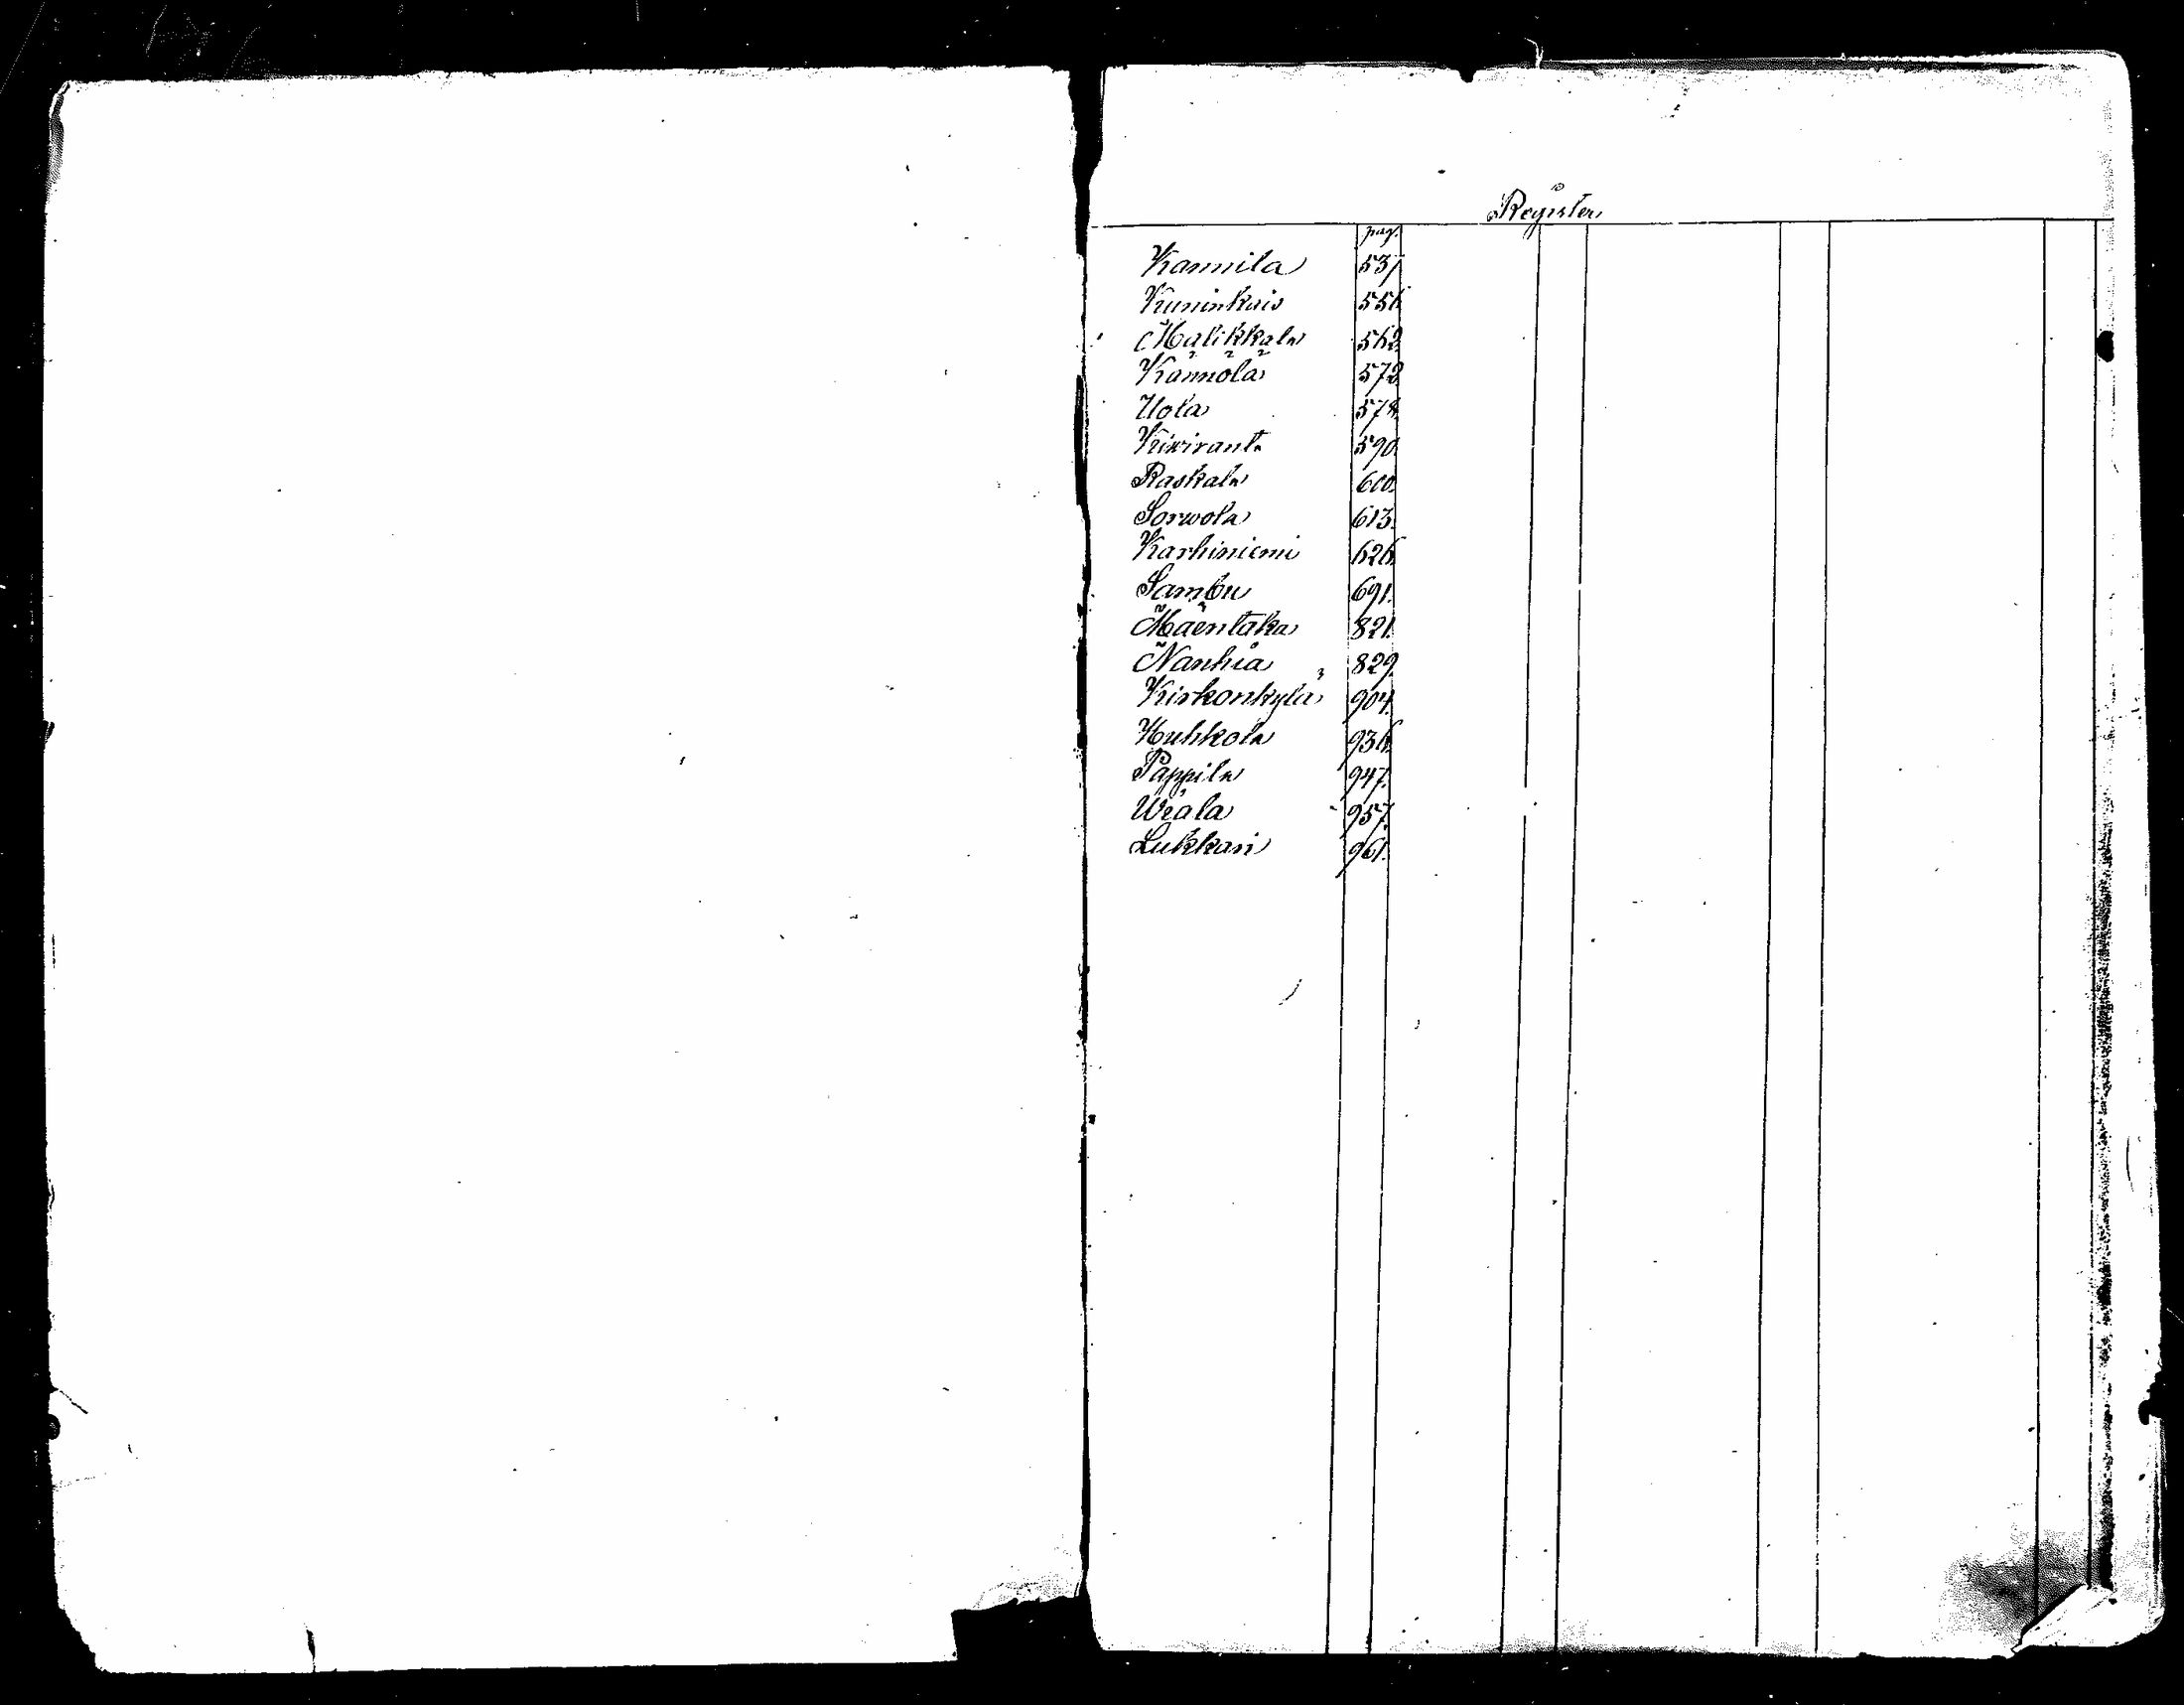 Register
pag.
Kannila 531
Kuninkais 556
Malikkala 562
Kännölä 572
Uola 578
Kiviranta 590
Raskala 600
Sorvola 613
Karhiniemi 626
Sambu 691
Mäentaka 821
Nanhia 829
Kirkonkylä 904
Huhkola 936
Pappila 947
Wiala 957
Lukkari 961